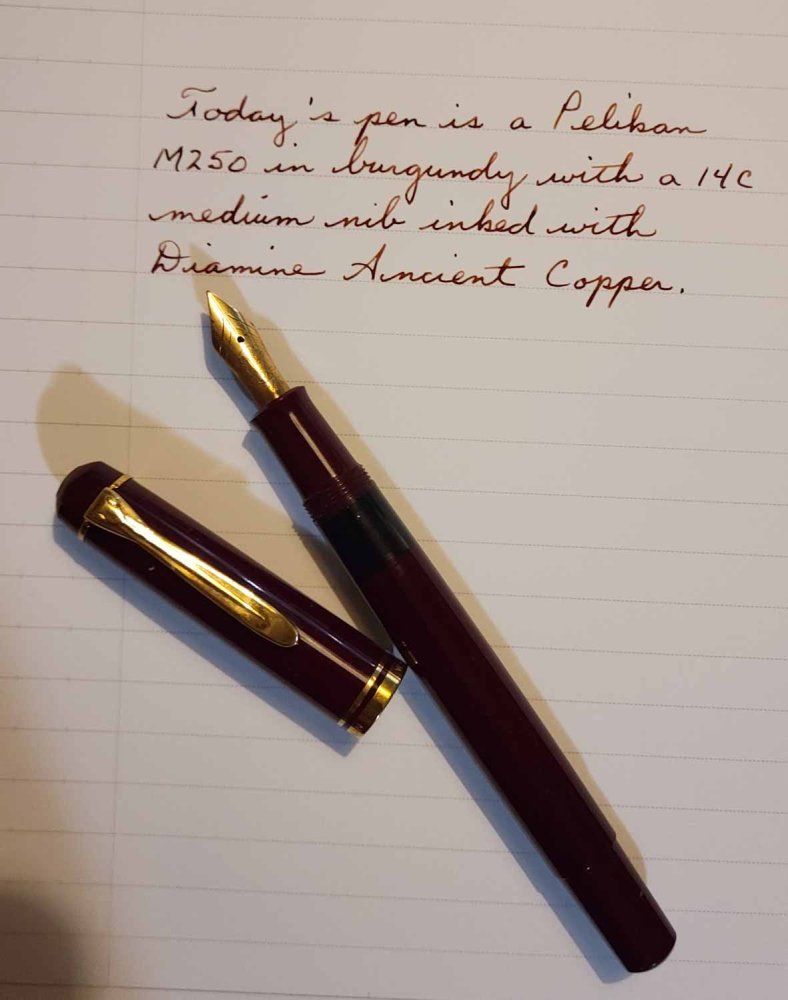 Today's pen is a Pelikan
M250 in burgundy with a 14C
medium nib inked with
Diamine Ancient Copper.